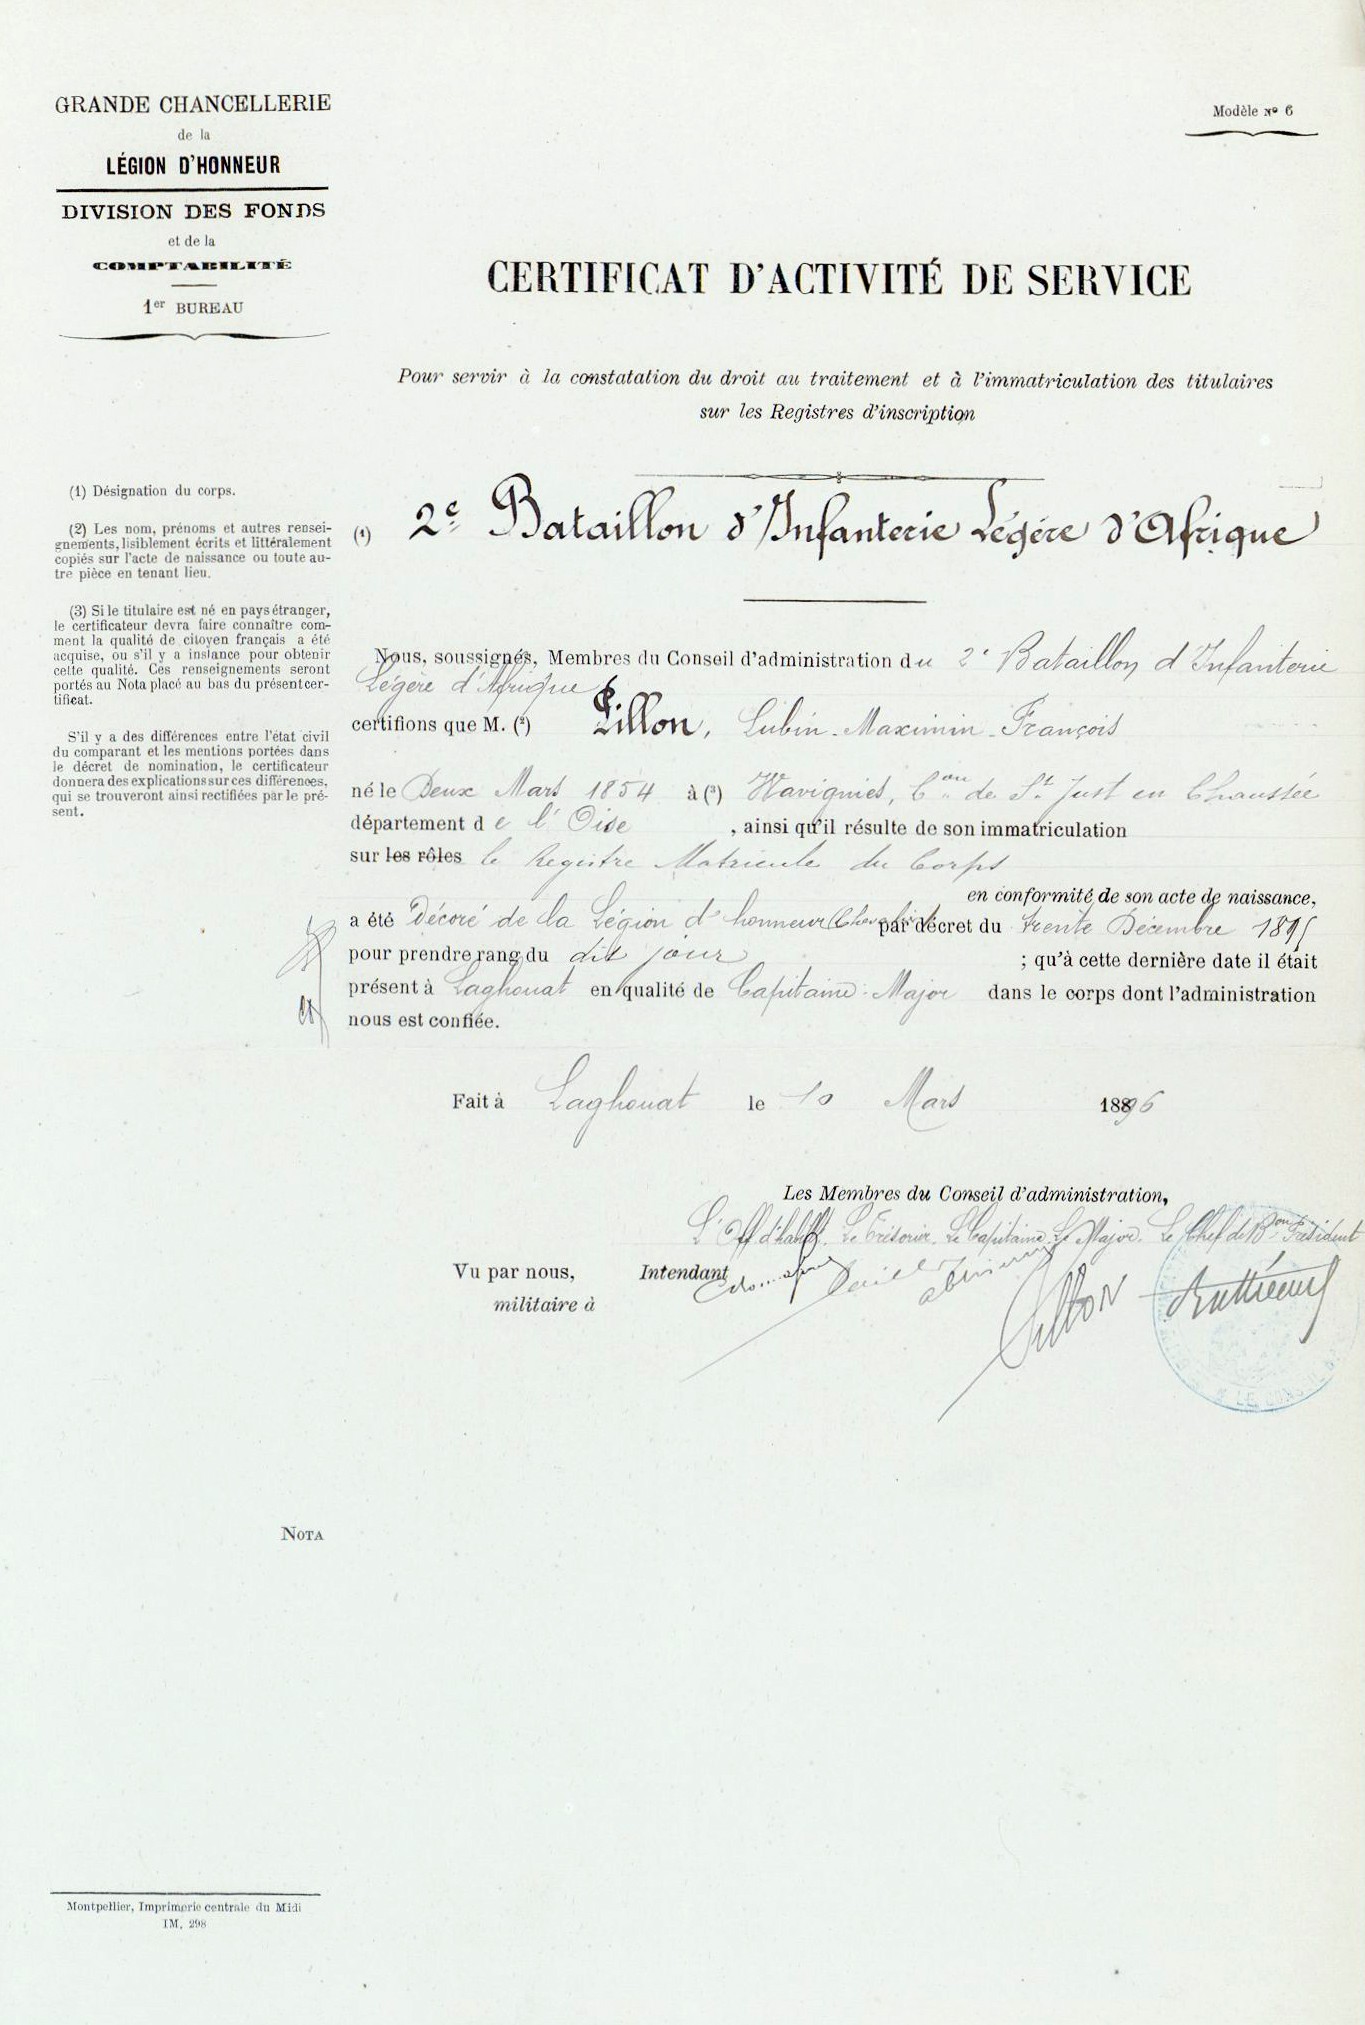 GRANDE CHANCELLERIE
de la
LÉGION D'HONNEUR
DIVISION DES FONDS
et de la
COMPTABILITÉ
1er BUREAU
Modèle No 6
CERTIFICAT D'ACTIVITÉ DE SERVICE
Pour servir à la constatation du droit au traitement et à l'immatriculation des titulaires
sur les Registres d'inscription
(1) Désignation du corps.
(2) Les nom, prénoms et autres rensei-
gnements, lisiblement écrits et littéralement
copiés sur l'acte de naissance ou toute au-
tre pièce en tenant lieu.
(3) Si le titulaire est né en pays étranger,
le certificateur devra faire connaître com-
ment la qualité de citoyen français a été
acquise, ou s'il y a instance pour obtenir
cette qualité. Ces renseignements seront
portés au Nota placé au bas du présent cer-
tificat.
S'il y a des différences entre l'état civil
du comparant et les mentions portées dans
le décret de nomination, le certificateur
donnera des explications sur ces différences,
qui se trouveront ainsi rectifiées par le pré-
sent.
(1) 2e Bataillon d'Infanterie Légère d'Afrique
Nous, soussignés, Membres du Conseil d'administration du 2e Bataillon d'Infanterie
Légère d'Afrique
certifions que M. (2) Lillon, Lubin-Maximin-François
né le Deux Mars 1854 à (3) Wavignies, Con de St Just en Chaussée
département de l'Oise, ainsi qu'il résulte de son immatriculation
sur les rôles le Registre Matricule du Corps
en conformité de son acte de naissance,
a été Décoré de la Légion d'honneur (Chevalier) par décret du trente Décembre 1895
pour prendre rang du dit jour ; qu'à cette dernière date il était
présent à Laghouat en qualité de Capitaine-Major dans le corps dont l'administration
nous est confiée.
Fait à Laghouat le 10 Mars 1896
Les Membres du Conseil d'administration,
L'Off d'habt. Le Trésorier. Le Capitaine. Le Major. Le Chef de Bon Président
Vu par nous, Intendant
militaire à
NOTA
Montpellier, Imprimerie centrale du Midi
IM. 298